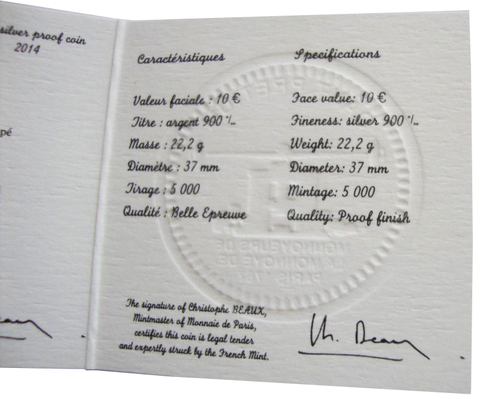 silver proof coin
2014
pé
Caractéristiques
Valeur faciale : 10 €
Titre : argent 900 ‰
Masse : 22,2 g
Diamètre : 37 mm
Tirage : 5 000
Qualité : Belle Epreuve
Specifications
Face value: 10 €
Fineness: silver 900 ‰
Weight: 22,2 g
Diameter: 37 mm
Mintage: 5 000
Quality: Proof finish
The signature of Christophe BEAUX,
Mintmaster of Monnaie de Paris,
certifies this coin is legal tender
and expertly struck by the French Mint.
Ch. Beaux